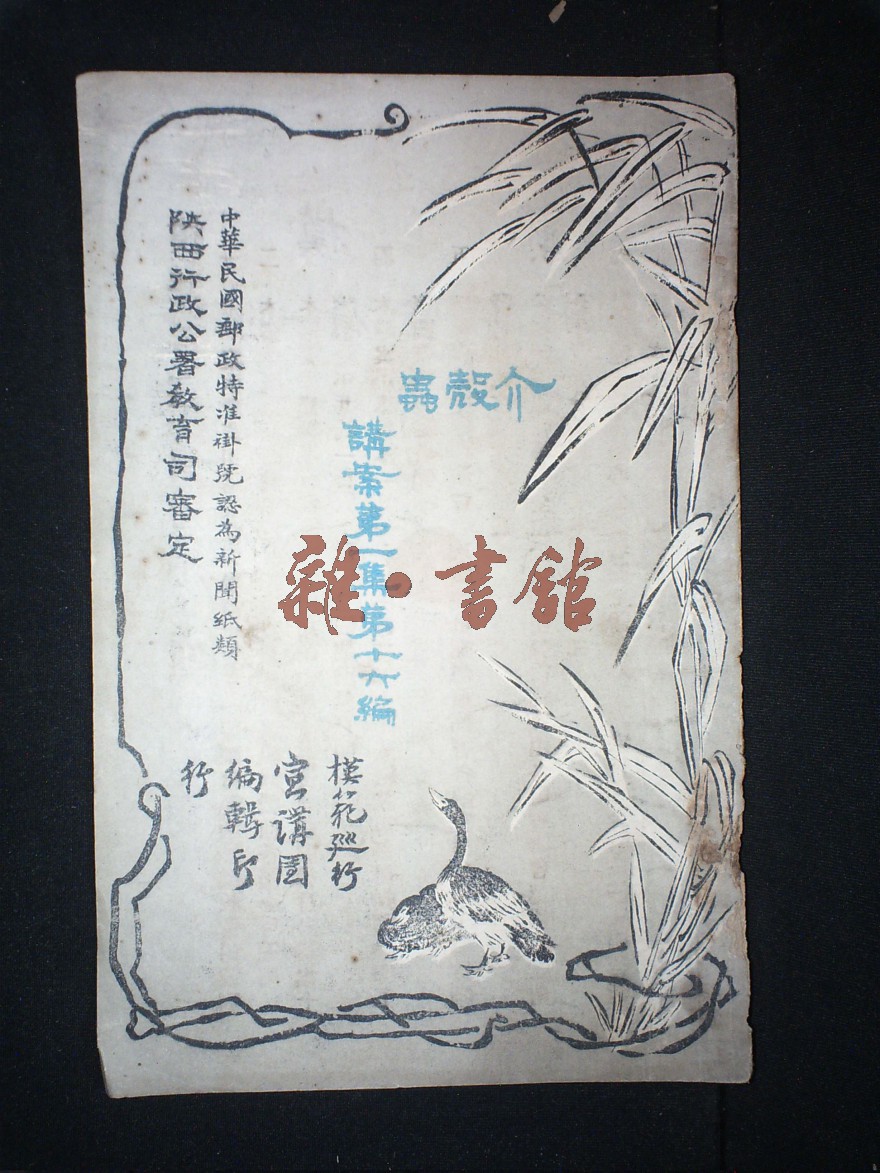 介殼蟲
講案第一集第十六編
模範巡行
宣講團
編輯印
行
中華民國郵政特准掛號認為新聞紙類
陝西行政公署教育司審定
雜·書館